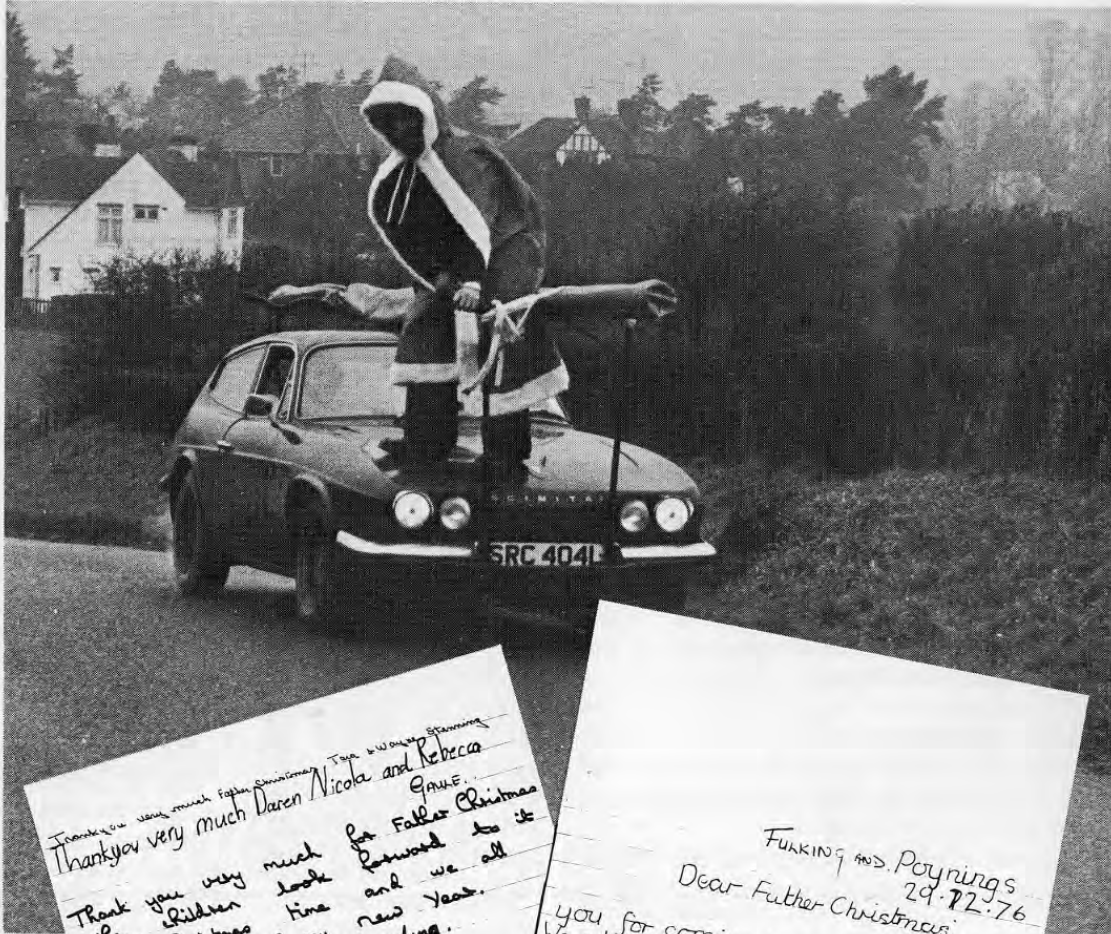 SCIMITAR
SRC 404L
Thankyou very much Father Christmas Tara & Wayne Stenning
Thankyou very much Daren Nicola and Rebecca
Thank you very much for Father Christmas
children look forward to it
time and we all
new Year.
Fulking AND. Poynings
29.12.76
Dear Futher Christmas
you for